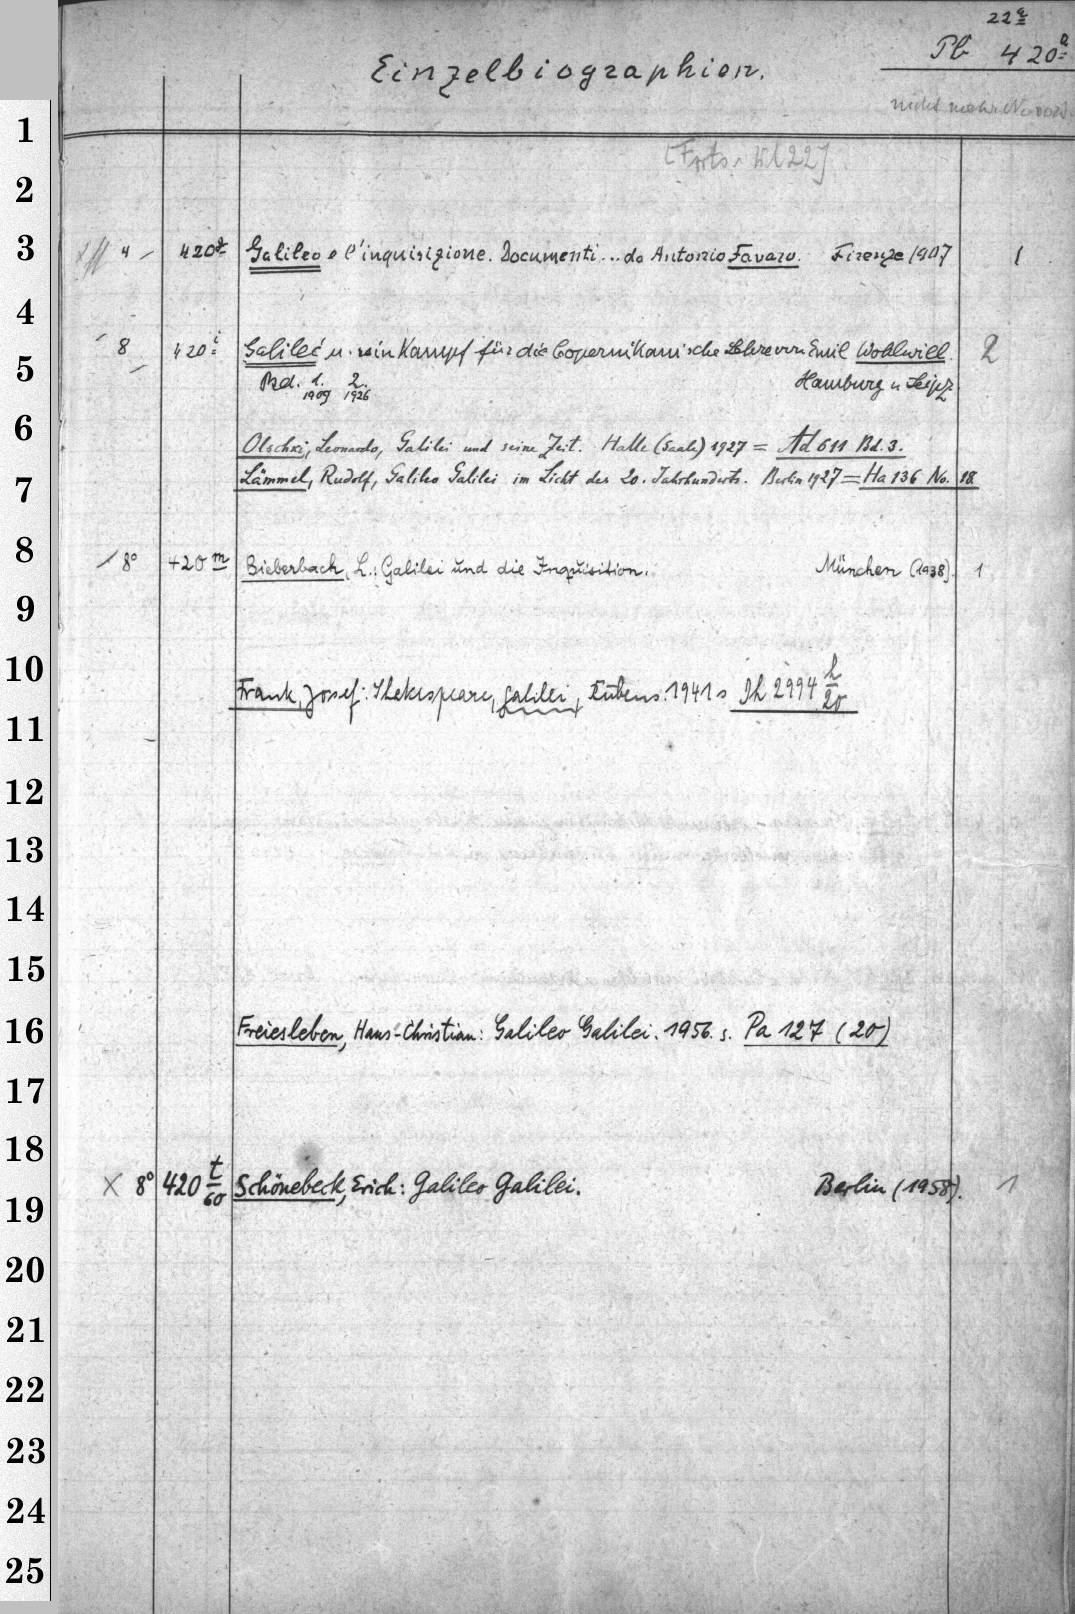 22a
Pb 420a
Einzelbiographien.
nicht mehr
[Forts. Bl 22]
1
2
3
4 420 Galileo e l'inquisizione. Documenti... da Antonio Favaro. Firenze 1907 1
4
8 420i Galilei u. sein Kampf für die Copernikanische Lehre von Emil Wohlwill. 2
5
Bd. 1. 2. Hamburg u. Leipz
1909 1926
6
Olschki, Leonardo, Galilei und seine Zeit. Halle (Saale) 1927 = Ad 611 Bd. 3.
7
Lämmel, Rudolf, Galileo Galilei im Licht des 20. Jahrhunderts. Berlin 1927 = Ha 136 No. 18
8
8° 420m Bieberbach, L.: Galilei und die Inquisition. München (1938). 1
9
10
Frank, Josef: Shakespeare, Galilei, Rubens. 1941 s Ih 2994 h/20
11
12
13
14
15
16
Freiesleben, Hans-Christian: Galileo Galilei. 1956. s. Pa 127 (20)
17
18
x 8° 420 t/60 Schönebeck, Erich: Galileo Galilei. Berlin (1958). 1
19
20
21
22
23
24
25